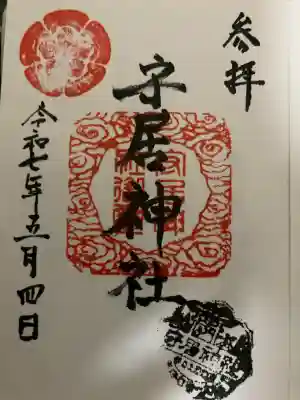 参拝
守居神社
令和七年五月四日